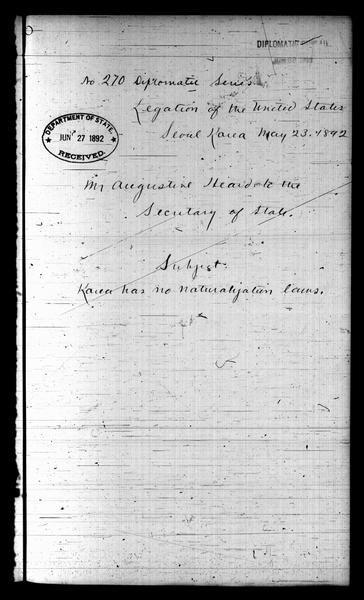 DIPLOMATIC
No. 270 Diplomatic Series
Legation of the United States
Seoul Korea May 23. 1892
DEPARTMENT OF STATE.
JUN 27 1892
RECEIVED.
Mr Augustine Heard to the
Secretary of State.
Subject.
Korea has no naturalization laws.